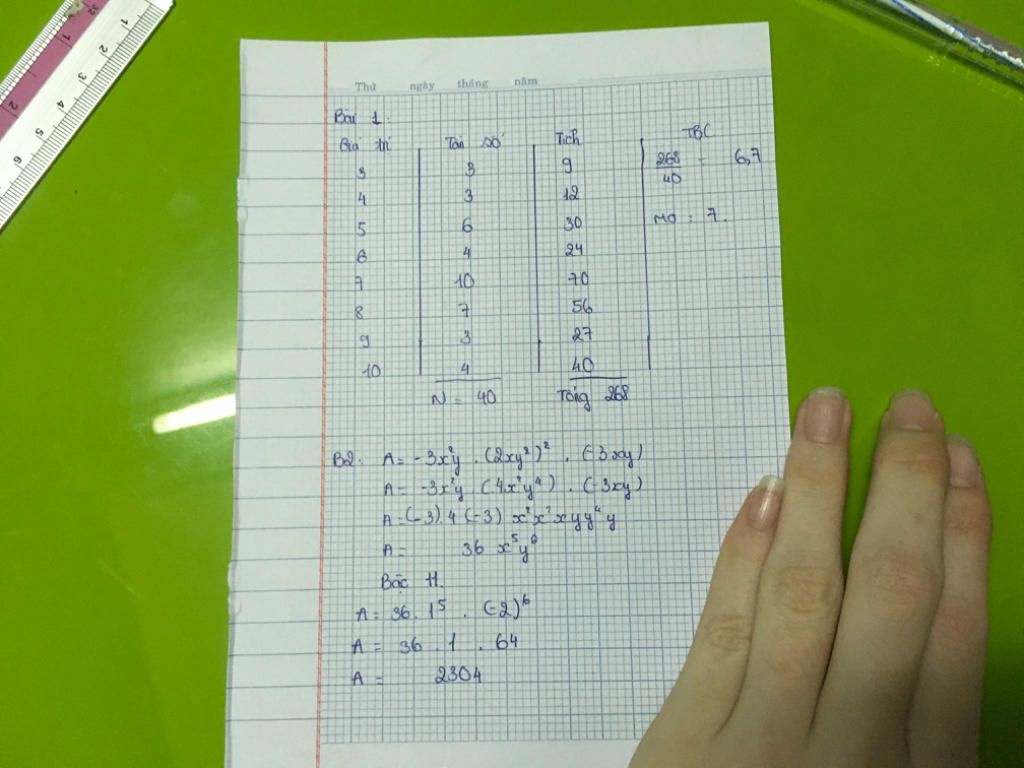 Thứ ngày tháng năm
Bài 1.
Giá trị Tần số Tích TBC
3 3 9 268/40 = 6,7
4 3 12
5 6 30 Mo : 7.
6 4 24
7 10 70
8 7 56
9 3 27
10 4 40
N = 40 Tổng 268
B2. A = -3x²y . (2xy²)² . (-3xy)
A = -3x²y . (4x²y⁴) . (-3xy)
A = (-3).4 (-3) x²x²xyy⁴y
A = 36 x⁵y⁶
Bậc 11.
A = 36. 1⁵ . (-2)⁶
A = 36 . 1 . 64
A = 2304